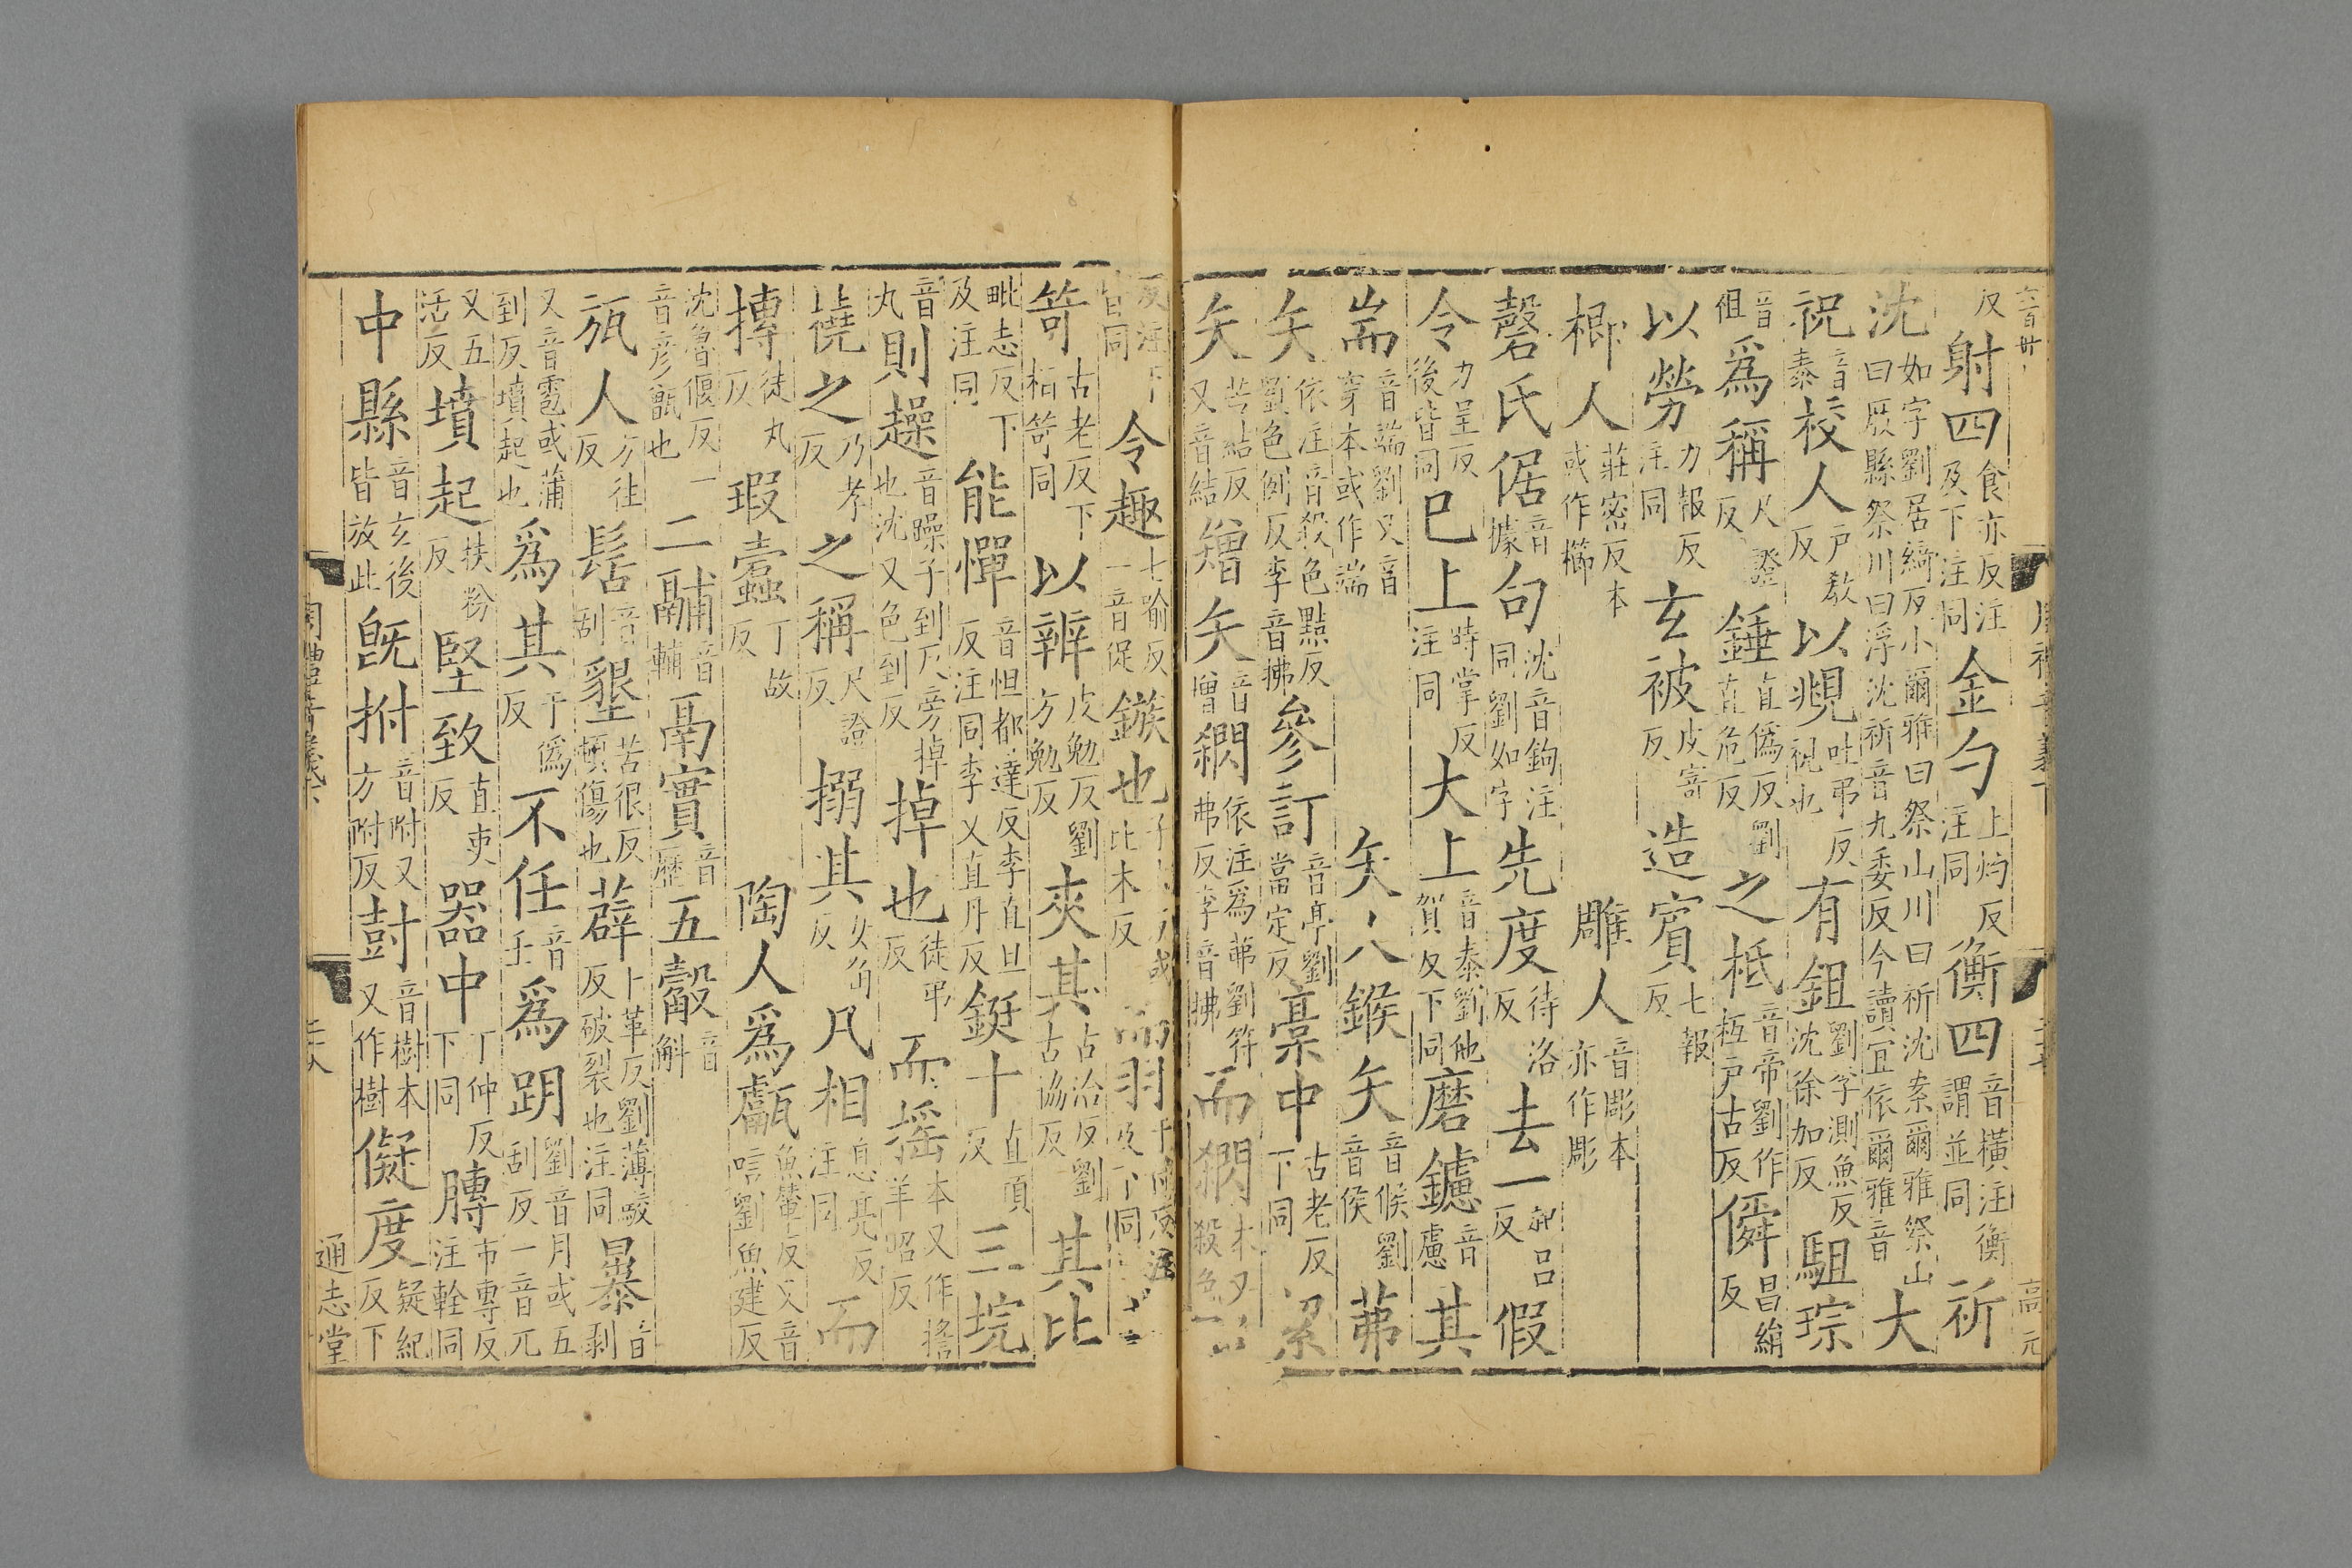 反射四食亦反注及下注同金勺上灼反注同衡四音橫注衡謂並同祈
沈如字劉居綺反小爾雅曰祭山川曰祈沈案爾雅祭山曰庪縣祭川曰浮沈祈音九委反今讀宜依爾雅音大
祝音泰校人戶教反以覜吐弔反視也有鉏劉㳄測魚反沈徐加反駔琮
音俎爲稱尺證反錘直僞反劉直危反之柢音帝劉作枑戶古反僢昌絹反
以勞力報反注同玄被皮寄反造賓七報反
楖人莊密反本或作櫛雕人音彫本亦作彫
磬氏倨音據句沈音鉤注同劉如字先度待洛反去一起呂反假
令力呈反後皆同已上時掌反注同大上音泰劉他賀反下同磨鑢音慮其
耑音端劉又音穿本或作端矢人鍭矢音侯劉音候茀
矢依注音殺色點反劉色例反李音拂參訂音亭劉當定反稾中古老反下同絜
矢苦結反又音結矰矢音增𦅾依注爲茀劉符弗反李音拂而𦅾
令趣七喻反一音促鏃也而羽
笴古老反下栢笴同以辨皮勉反劉方勉反夾其古洽反劉古協反其比
毗志反下及注同能憚音怛都達反李直旦反注同李又直丹反鋌十直頂反三垸
音丸則趮音躁子到反旁掉也沈又色到反掉也徒弔反而搖本又作㨱羊昭反
橈之乃孝反之稱尺證反搦其女角反凡相息亮反注同而
摶徒丸反瑕蠧丁故反陶人爲甗魚輦反又音言劉魚建反
沈魯偃反一音彥甑也二䩉音輔鬲實音歷五觳音斛
瓬人方往反髺音刮墾苦很反頓傷也薜卜革反劉薄駮反破裂也注同暴音剥
又音雹或蒲到反墳起也爲其于僞反不任音壬爲跀劉音月或五刮反一音兀
又五活反墳起扶粉反堅致直吏反器中丁仲反下同膞市專反注輇同
中縣音玄後皆放此旣拊音附又方附反尌音樹本又作樹儗度疑紀反下
周禮音義下
通志堂
高元